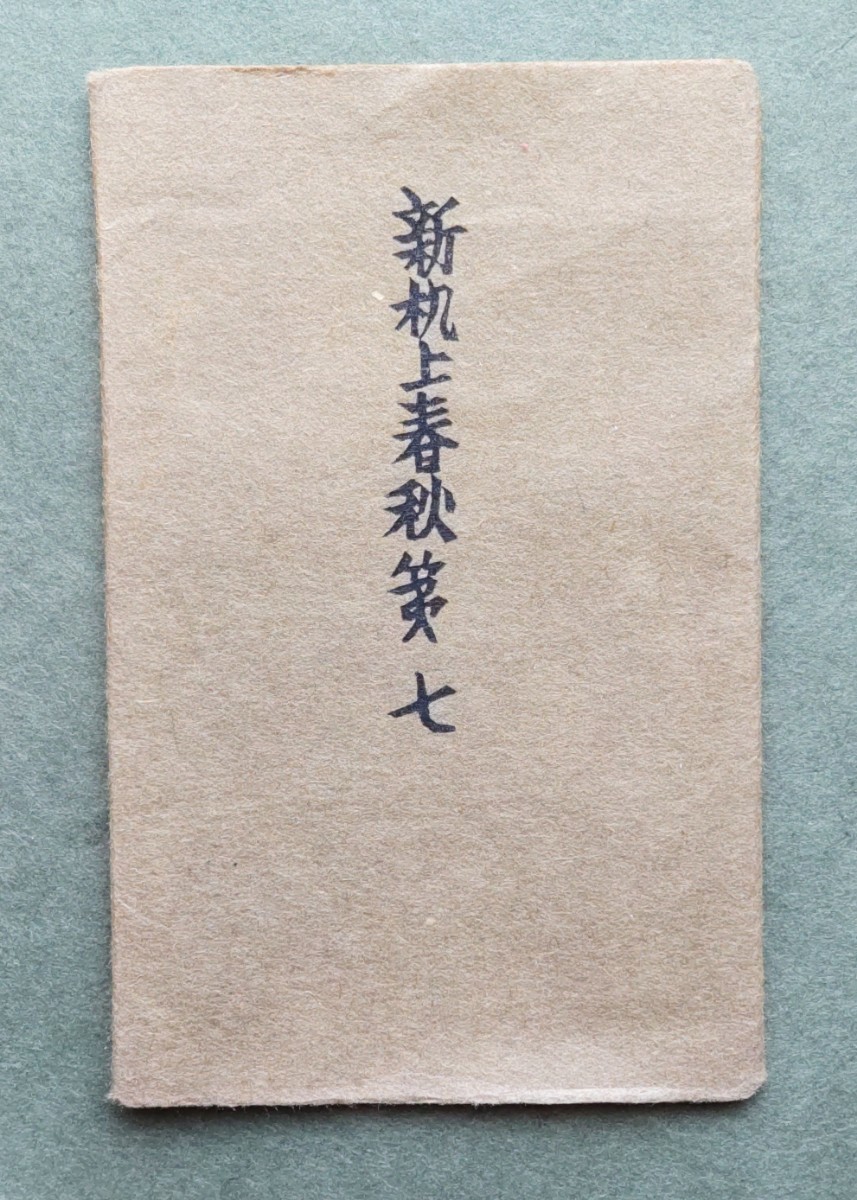 新机上春秋第七